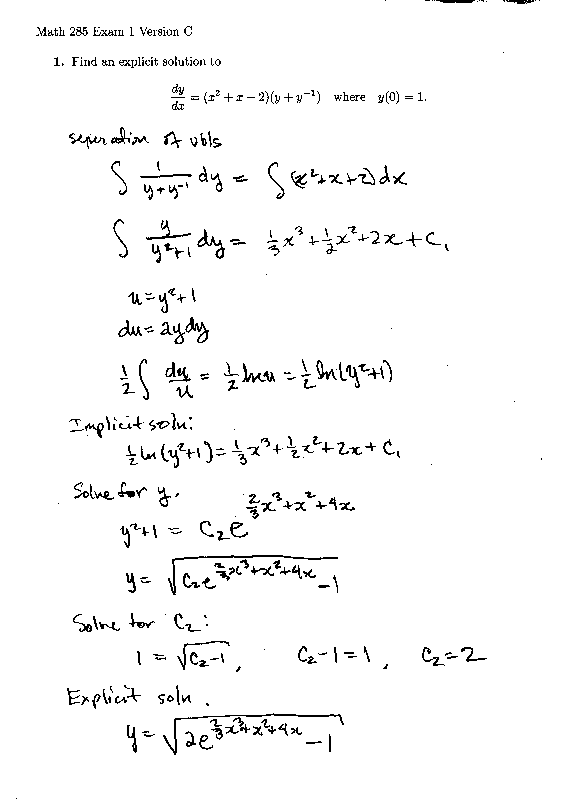 Math 285 Exam 1 Version C
1. Find an explicit solution to
dy/dx = (x² + x − 2)(y + y⁻¹) where y(0) = 1.
seperation of vbls
∫ 1/(y+y⁻¹) dy = ∫ (x²+x+2) dx
∫ y/(y²+1) dy = 1/3 x³ + 1/2 x² + 2x + C₁
u = y²+1
du = 2y dy
1/2 ∫ du/u = 1/2 ln u = 1/2 ln(y²+1)
Implicit soln:
1/2 ln(y²+1) = 1/3 x³ + 1/2 x² + 2x + C₁
Solve for y.
y²+1 = C₂e^(2/3 x³ + x² + 4x)
y = √(C₂e^(2/3 x³ + x² + 4x) − 1)
Solve for C₂:
1 = √(C₂−1), C₂−1 = 1, C₂ = 2
Explicit soln.
y = √(2e^(2/3 x³ + x² + 4x) − 1)